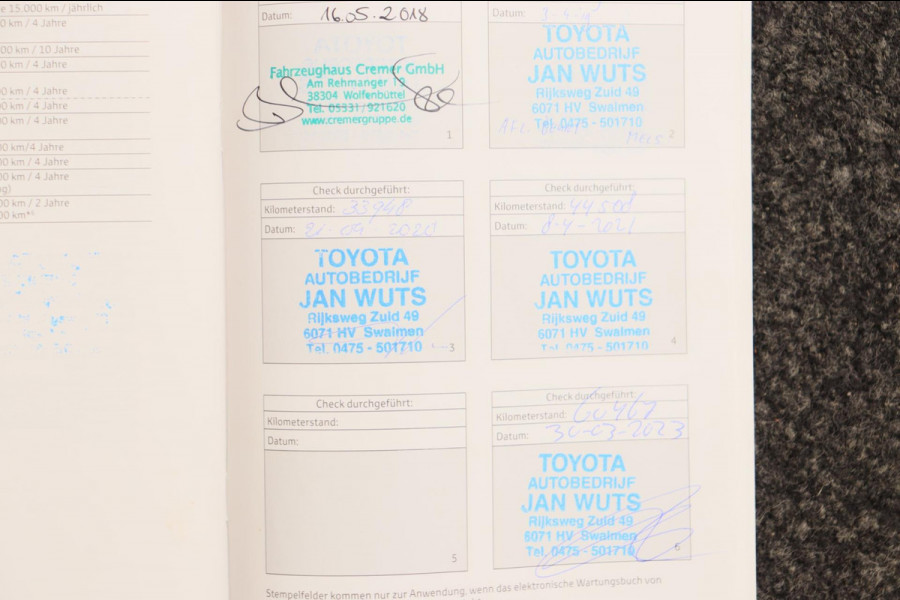 15.000 km / jährlich
0 km / 4 Jahre
00 km / 10 Jahre
0 km / 4 Jahre
00 km / 4 Jahre
00 km / 4 Jahre
00 km / 4 Jahre
00 km/4 Jahre
00 km / 4 Jahre
00 km / 4 Jahre
00 km / 2 Jahre
00 km*⁵
Datum: 16.05.2018
Fahrzeughaus Cremer GmbH
Am Rehmanger
38304 Wolfenbüttel
Tel. 05331/921620
www.cremergruppe.de
1
Datum:
TOYOTA
AUTOBEDRIJF
JAN WUTS
Rijksweg Zuid 49
6071 HV Swalmen
Tel. 0475 - 501710
2
Check durchgeführt:
Kilometerstand: 33948
Datum:
TOYOTA
AUTOBEDRIJF
JAN WUTS
Rijksweg Zuid 49
6071 HV Swalmen
Tel. 0475 - 501710
3
Check durchgeführt:
Kilometerstand: 44508
Datum: 8-4-2021
TOYOTA
AUTOBEDRIJF
JAN WUTS
Rijksweg Zuid 49
6071 HV Swalmen
Tel. 0475 - 501710
4
Check durchgeführt:
Kilometerstand:
Datum:
5
Check durchgeführt:
Kilometerstand: 60467
Datum: 30-03-2023
TOYOTA
AUTOBEDRIJF
JAN WUTS
Rijksweg Zuid 49
6071 HV Swalmen
Tel. 0475 - 501710
6
Stempelfelder kommen nur zur Anwendung, wenn das elektronische Wartungsbuch von